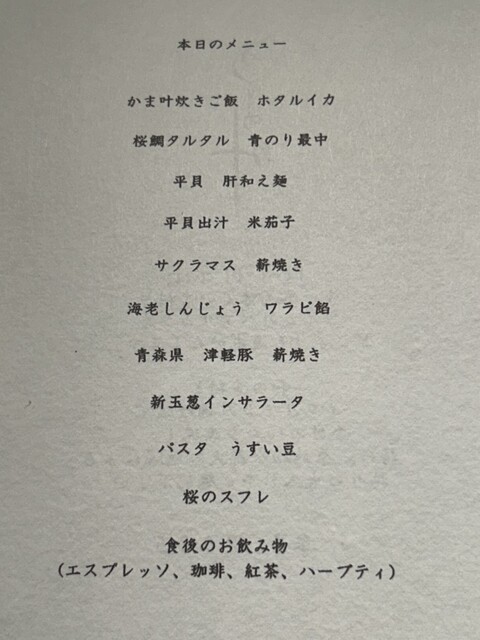 本日のメニュー
かま叶炊きご飯　ホタルイカ
桜鯛タルタル　青のり最中
平貝　肝和え麺
平貝出汁　米茄子
サクラマス　薪焼き
海老しんじょう　ワラビ餡
青森県　津軽豚　薪焼き
新玉葱インサラータ
パスタ　うすい豆
桜のスフレ
食後のお飲み物
（エスプレッソ、珈琲、紅茶、ハーブティ）